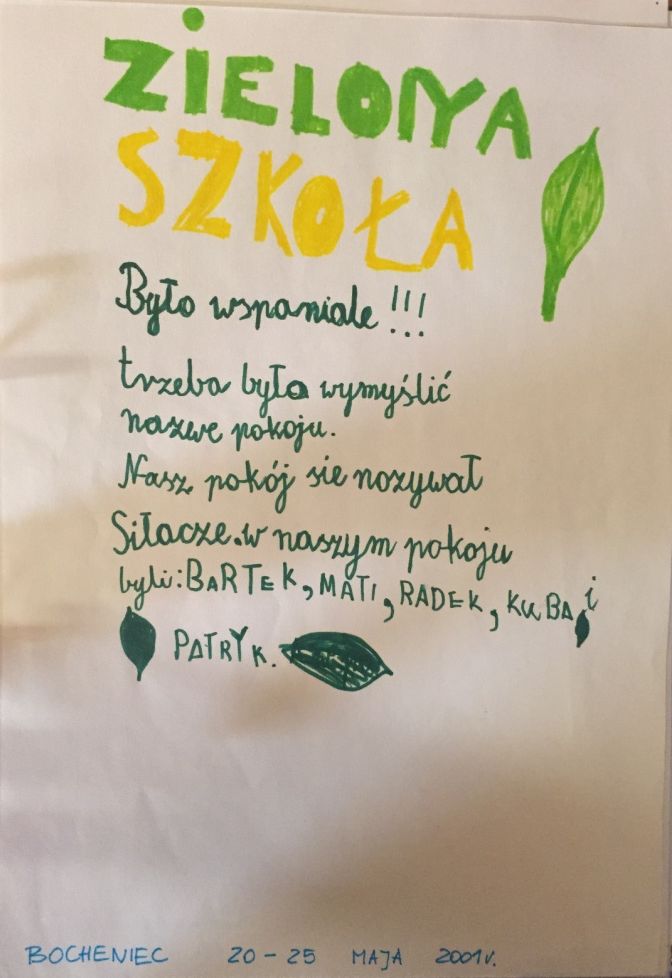 ZIELONA
SZKOŁA
Było wspaniale!!!
trzeba była wymyślić
nazwe pokoju.
Nasz pokój sie nozywał
Siłacze.w naszym pokoju
byli: BARTEK, MATI, RADEK, KUBA i
PATRYK.
BOCHENIEC 20-25 MAJA 2001r.